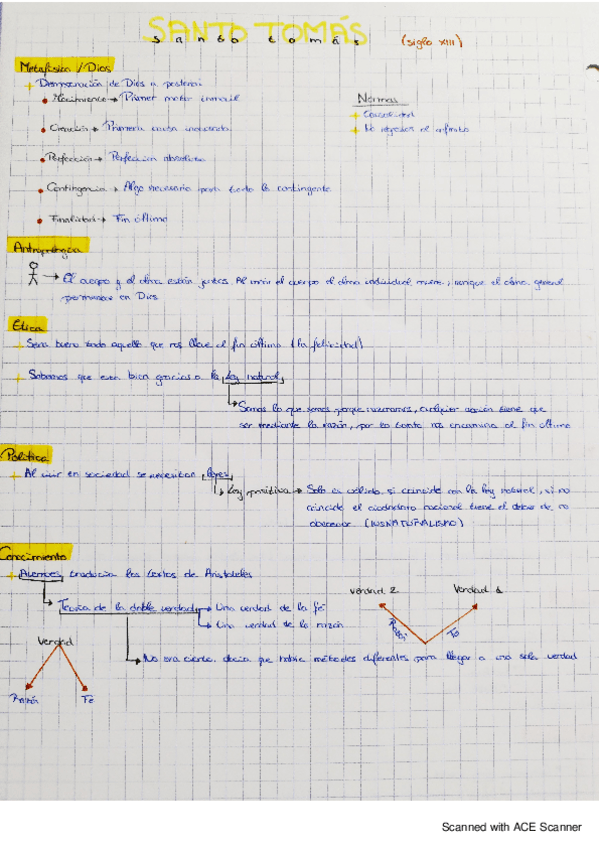 SANTO TOMÁS
santo tomás (siglo XIII)
Metafísica / Dios
+ Demostración de Dios a posteriori
• Movimiento → Primer motor inmovil
• Creación → Primera causa incausada
• Perfección → Perfección absoluta
• Contingencia → Algo necesario para todo lo contingente
• Finalidad → Fin último
Normas
+ Causalidad
+ No regreso al infinito
Antropología
→ El cuerpo y el alma están juntos. Al morir el cuerpo el alma individual muere, aunque el alma general
permanece en Dios
Ética
+ Será bueno todo aquello que nos lleve al fin último (la felicidad)
+ Sabemos que está bien gracias a la ley natural
→ Somos lo que somos porque razonamos, cualquier acción tiene que
ser mediante la razón, por lo tanto nos encamina al fin último
Política
+ Al vivir en sociedad se necesitan leyes
→ Ley positiva → Solo es válida si coincide con la ley natural, si no
coincide el ciudadano racional tiene el deber de no
obedecer (IUSNATURALISMO)
Conocimiento
+ Averroes traducía los textos de Aristóteles
→ Teoría de la doble verdad → Una verdad de la fé
→ Una verdad de la razón
Verdad 2
Verdad 1
Razón
Fe
→ No era cierto, decía que había métodos diferentes para llegar a una sola verdad
Verdad
Razón
Fe
Scanned with ACE Scanner